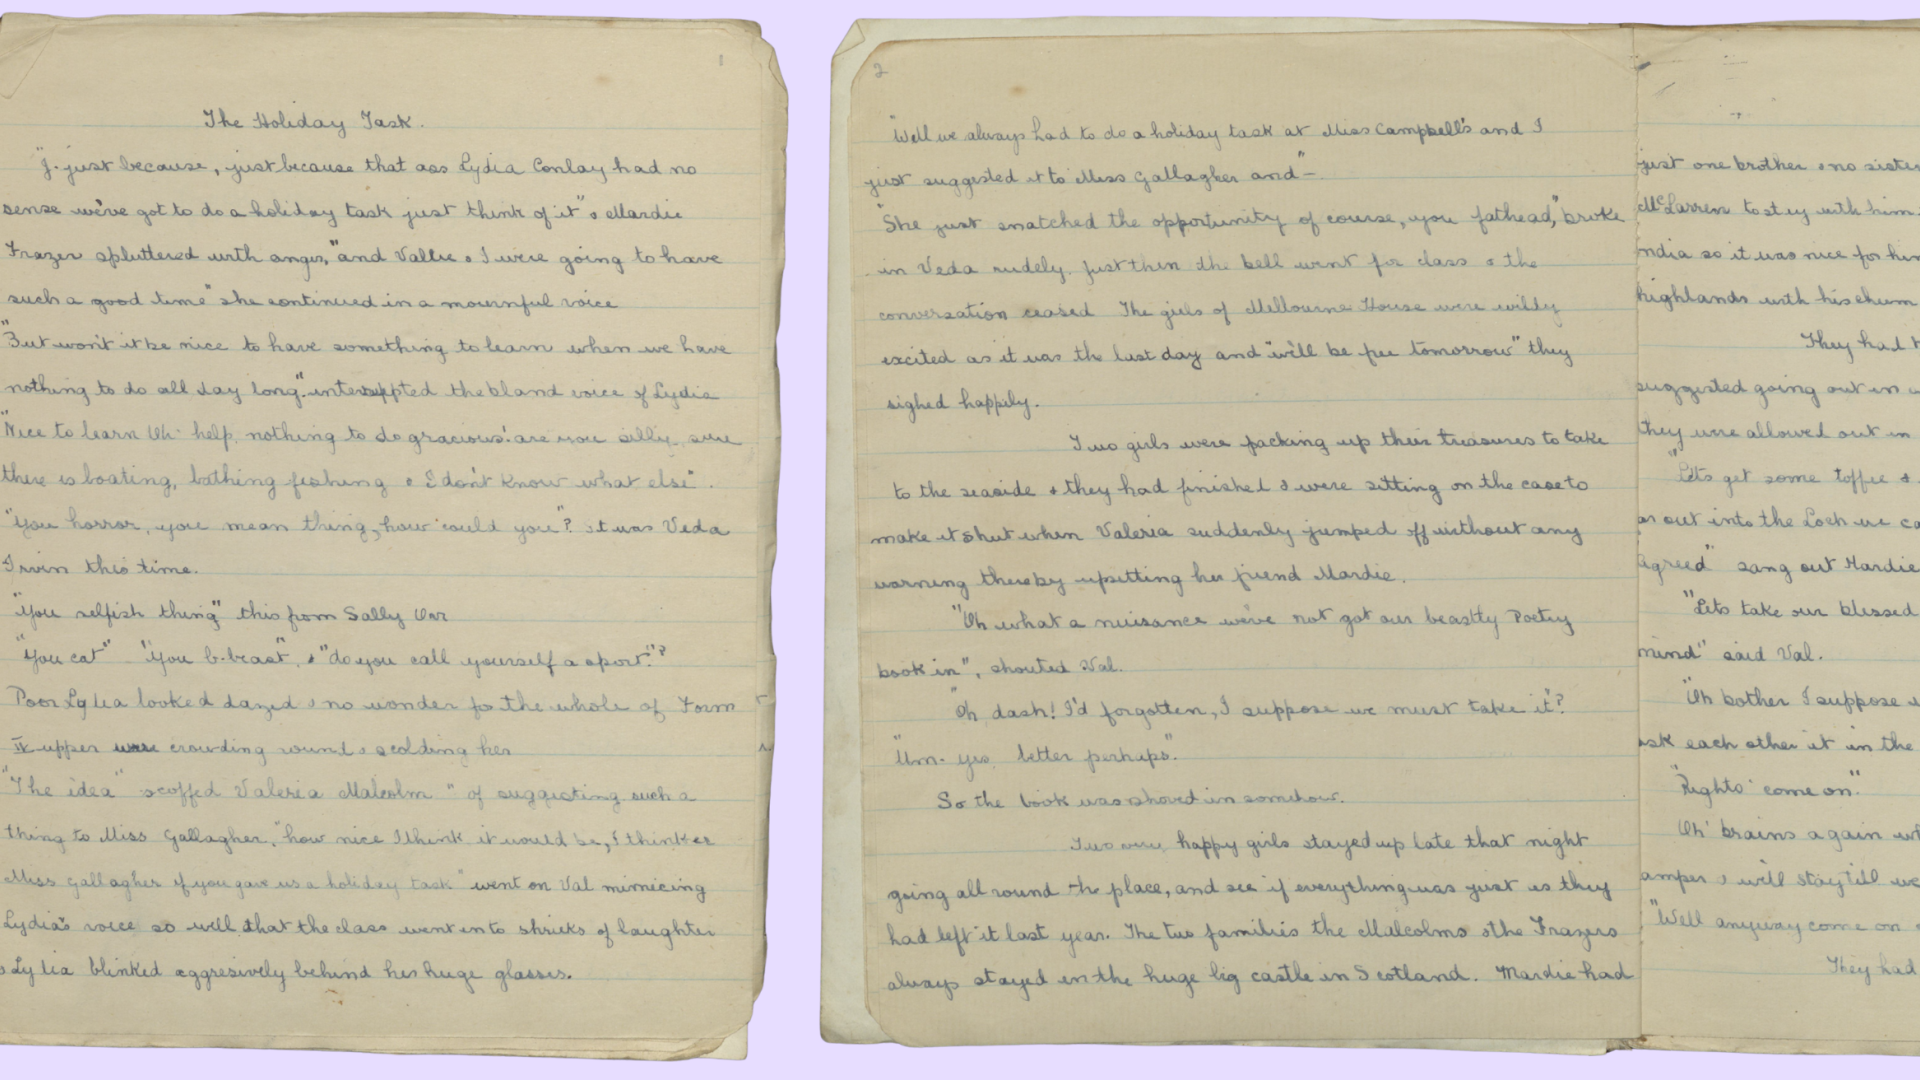 1
The Holiday Task.
"J. just because, just because that ass Lydia Conlay had no
sense we've got to do a holiday task just think of it" & Mardie
Frazer spluttered with anger, "and Vallie & I were going to have
such a good time" she continued in a mournful voice
"But won't it be nice to have something to learn when we have
nothing to do all day long". interrupted the bland voice of Lydia
"Nice to learn Oh! help, nothing to do gracious! are you silly, sure
there is boating, bathing fishing & I don't know what else".
"You horror, you mean thing, how could you"? it was Veda
Irvin this time.
"You selfish thing" this from Sally Orr
"You cat" "You b-beast", & "do you call yourself a sport."?
Poor Lydia looked dazed & no wonder for the whole of Form
IV upper were crowding round & scolding her
"The idea" scoffed Valeria Malcolm "of suggesting such a
thing to Miss Gallagher, "how nice I think it would be, I think er
Miss Gallagher if you gave us a holiday task" went on Val mimicing
Lydia's voice so well that the class went into shrieks of laughter
& Lydia blinked aggresively behind her huge glasses.
2
"Well we always had to do a holiday task at Miss Campbell's and I
just suggested it to Miss Gallagher and"-.
"She just snatched the opportunity of course, you fathead," broke
in Veda rudely. Just then the bell went for class & the
conversation ceased The girls of Mellbourne House were wildly
excited as it was the last day and "we'll be free tomorrow" they
sighed happily.
Two girls were packing up their treasures to take
to the seaside & they had finished & were sitting on the case to
make it shut when Valeria suddenly jumped off without any
warning thereby upsetting her friend Mardie.
"Oh what a nuisance we've not got our beastly Poetry
book in", shouted Val.
"Oh dash! I'd forgotten, I suppose we must take it"?
"Um. yes, better perhaps".
So the book was shoved in somehow.
Two very happy girls stayed up late that night
going all round the place, and see if everything was just as they
had left it last year. The two families the Malcolms & the Frazers
always stayed in the huge big castle in Scotland. Mardie had
just one brother & no sister
McLarren to stay with him
India so it was nice for him
highlands with his chum
They had
suggested going out in
they were allowed out in
"Lets get some toffee &
out into the Loch we
Agreed" sang out Mardie
"Lets take our blessed
mind" said Val.
"Oh bother I suppose
ask each other it in the
"Righto' come on".
Oh' brains again
amper & we'll stay till we
"Well anyway come on
They had